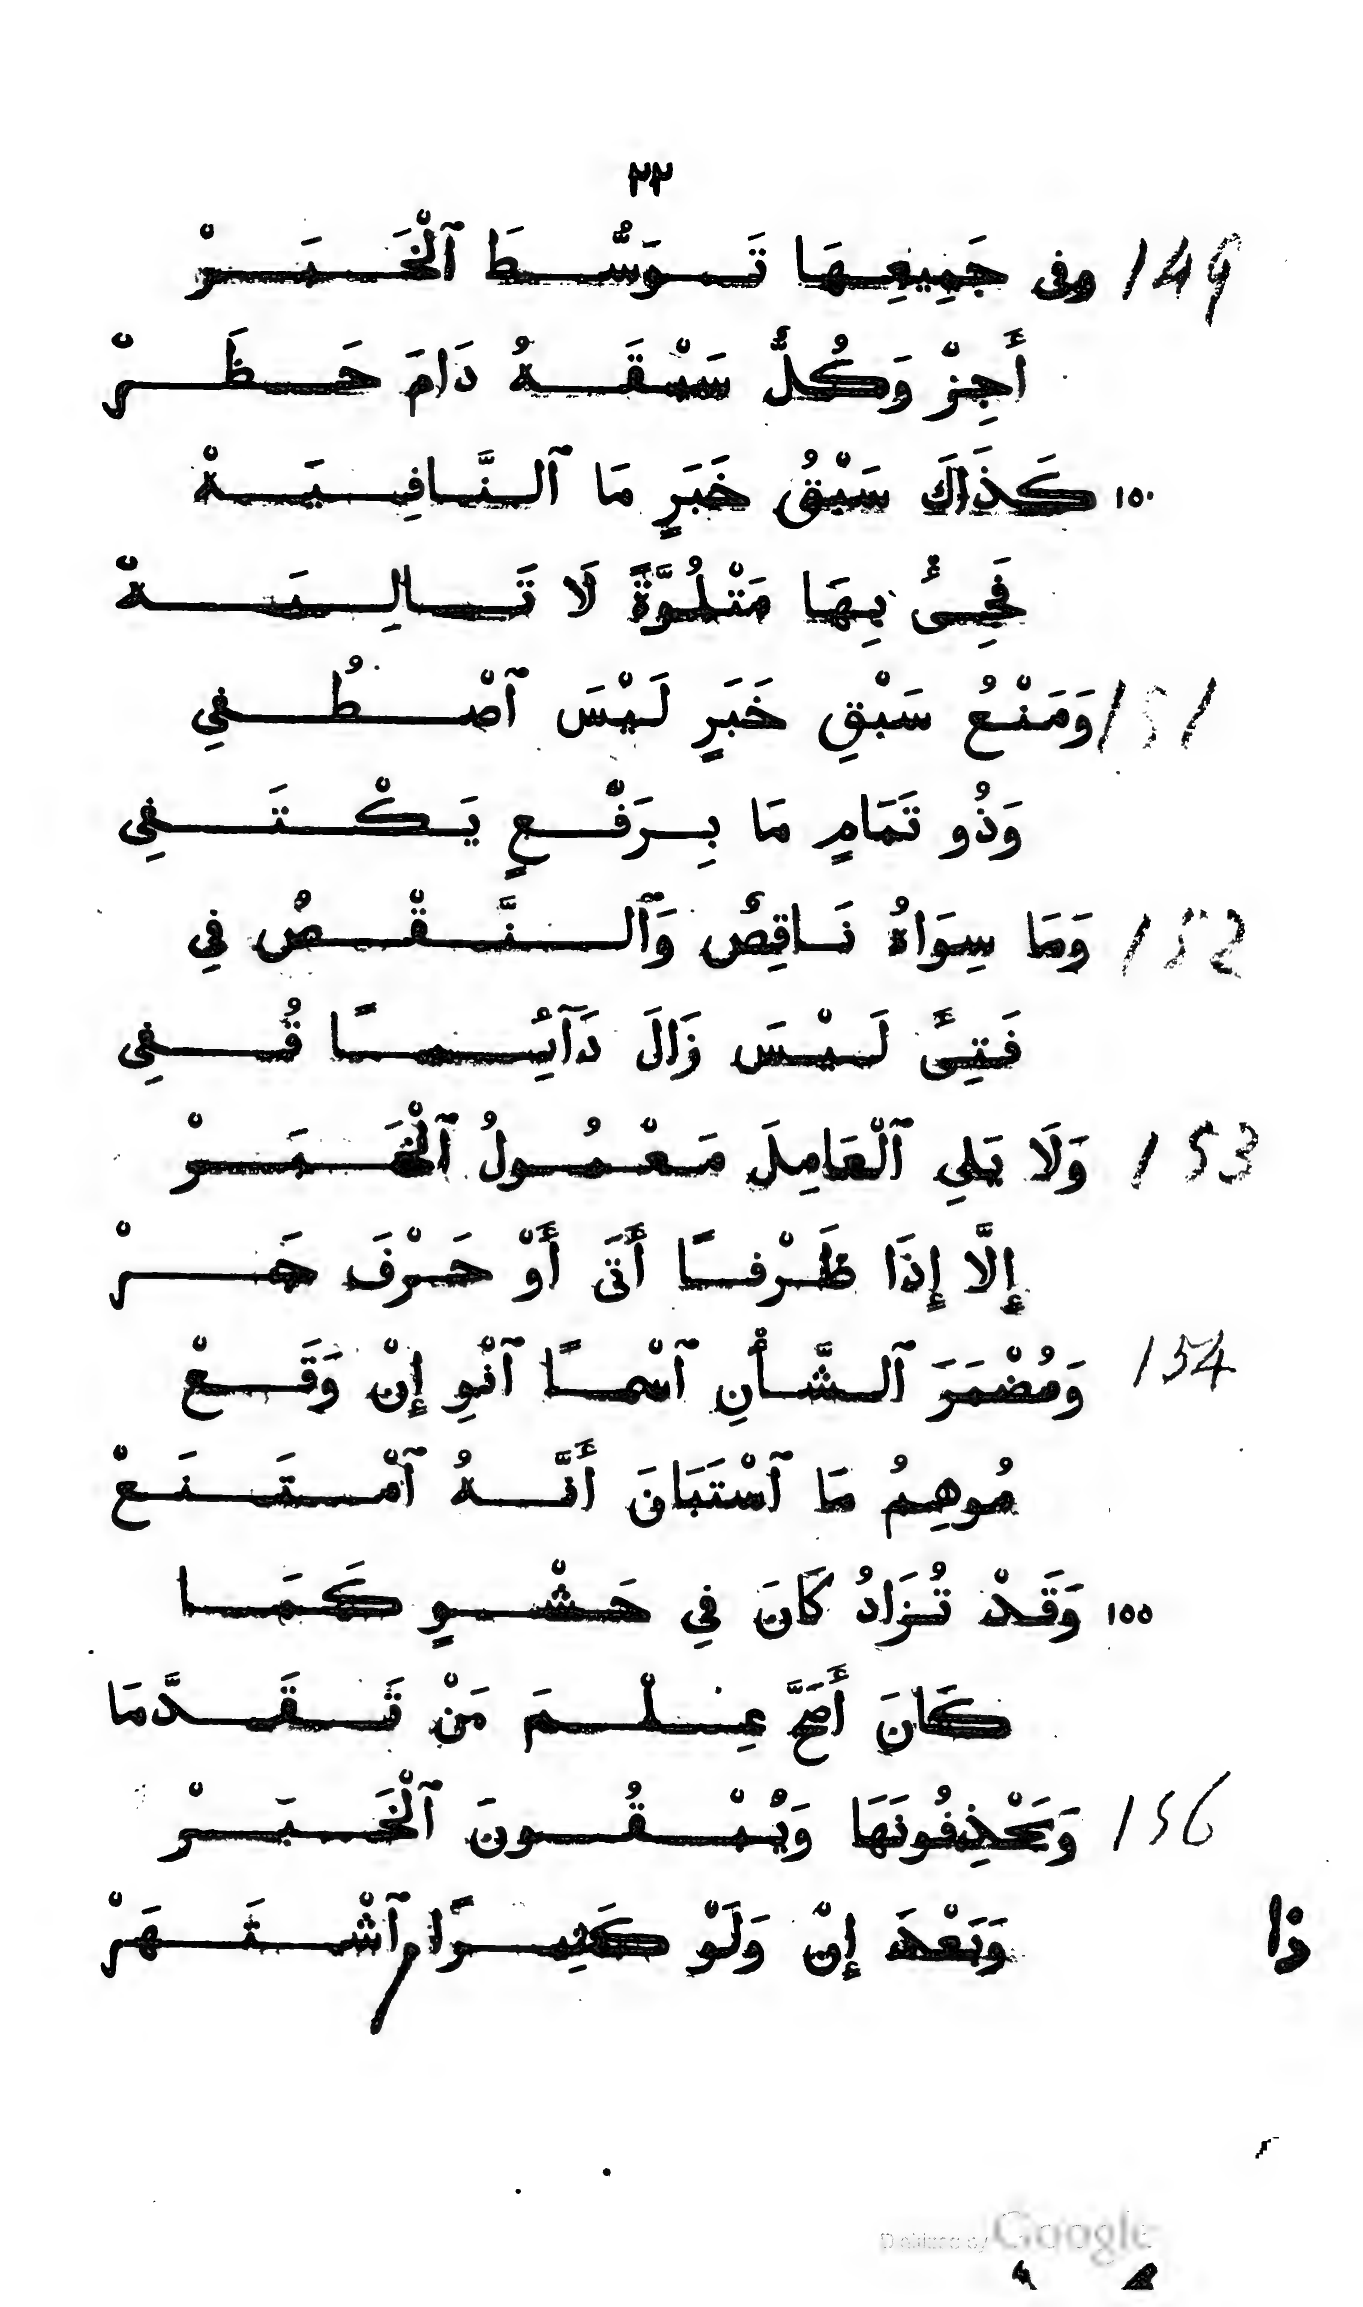 ٢٢
149 وفى جَمِيعِهَا تَوَسُّطَ ٱلْخَبَرْ
أَجِزْ وَكُلٌّ سَبْقَهُ دَامَ حَظَرْ
١٥٠ كَذَاكَ سَبْقُ خَبَرٍ مَا ٱلنَّافِيَهْ
فَجِئْ بِهَا مَتْلُوَّةً لَا تَالِيَهْ
151 وَمَنْعُ سَبْقِ خَبَرٍ لَيْسَ ٱصْطُفِي
وَذُو تَمَامٍ مَا بِرَفْعٍ يَكْتَفِي
152 وَمَا سِوَاهُ نَاقِصٌ وَٱلنَّقْصُ فِي
فَتِئَ لَيْسَ زَالَ دَآئِمًا قُفِي
153 وَلَا يَلِي ٱلْعَامِلَ مَعْمُولُ ٱلْخَبَرْ
إِلَّا إِذَا ظَرْفًا أَتَى أَوْ حَرْفَ جَرْ
154 وَمُضْمَرَ ٱلشَّأْنِ ٱسْمًا ٱنْوِ إِنْ وَقَعْ
مُوهِمُ مَا ٱسْتَبَانَ أَنَّهُ ٱمْتَنَعْ
١٥٥ وَقَدْ تُزَادُ كَانَ فِي حَشْوٍ كَمَا
كَانَ أَصَحَّ عِلْمَ مَنْ تَقَدَّمَا
156 وَيَحْذِفُونَهَا وَيُبْقُونَ ٱلْخَبَرْ
وَبَعْدَ إِنْ وَلَوْ كَثِيرًا ٱشْتَهَرْ
ذا
Digitized by Google